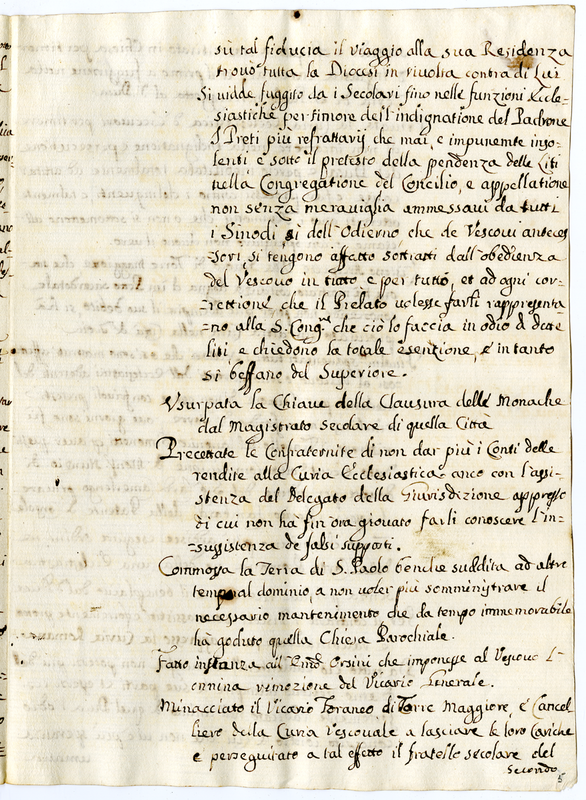 sù tal fiducia il viaggio alla sua Residenza
trovò tutta la Diocesi in rivolta contra di lui
Si vidde fuggito da i Secolari fino nelle funzioni Eccle-
siastiche per timore dell'indignatione del Padrone
I Preti più refrattarij che mai, e impunemte inso-
lenti e sotto il pretesto della pendenza delle Liti
nella Congregatione del Concilio, e appellatione
non senza meraviglia ammessavi da tutti
i Sinodi sì dell'Odierno che de Vescovi anteces
=sori, si tengono affatto sottratti dall'obedienza
del Vescovo in tutto e per tutto, et ad ogni cor=
=rettione che il Prelato volesse farli rappresenta
=no alla S. Congne che ciò lo faccia in odio di dette
liti e chiedono la totale esenzione, e in tanto
si beffano del Superiore.
Usurpata la Chiave della Clausura delle Monache
dal Magistrato secolare di quella Città
Precettate le Confraternite di non dar più i Conti delle
rendite alla Curia Ecclesiastica anco con l'assi-
stenza del Delegato della Giurisdizione appresso
di cui non hà fin'ora giovato farli conoscere l'in-
=sussistenza de falsi supposti.
Commossa la Terra di S. Paolo benche suddita ad altro
temporal dominio a non voler più somministrare il
necessario mantenimento che da tempo immemorabile
hà goduto quella Chiesa Parochiale.
Fatto instanza all' Emo Orsini che imponesse al Vescovo l'o-
mnina remozione del Vicario Generale.
Minacciato il Vicario Foraneo di Torre Maggiore, e Cancel
liero della Curia Vescovale a lasciare le loro Cariche
e perseguitato a tal effetto il fratello secolare del
secondo
5